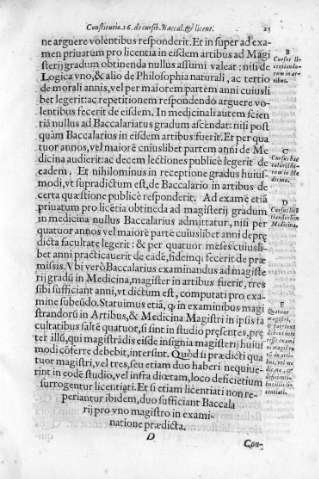 Constitutio.26. de cursib. Baccal. & licent. 23
ne arguere volentibus responderit. Et in super ad exa-
men priuatum pro licentia in eisdem artibus ad Magi
sterij gradum obtinenda nullus assumi valeat: nisi de
Logica vno, & alio de Philosophia naturali, ac tertio
de morali annis, vel per maiorem partem anni cuiusli
bet legerit: ac repetitionem respondendo arguere vo-
lentibus fecerit de eisdem. In medicinali autem scien
tia nullus ad Baccalariatus gradum ascendat: nisi post
quam Baccalarius in eisdem artibus fuerit. Et per qua
tuor annos, vel maiorẽ cuiuslibet partem anni de Me
dicina audierit: ac decem lectiones publicè legerit de
eadem. Et nihilominus in receptione gradus huius-
modi, vt supradictum est, de Baccalario in artibus de
certa quæstione publicè responderit. Ad examẽ etiã
priuatum pro licẽtia obtinẽda ad magisterij gradum
in medicina nullus Baccalarius admitatur, nisi per
quatuor annos vel maiorẽ partẽ cuiuslibet anni de præ
dicta facultate legerit: & per quatuor mẽses cuiusli-
bet anni practicauerit de eadẽ, sidemq; fecerit de præ
missis. Vbi verò Baccalarius examinandus ad magiste
rij gradũ in Medicina, magister in artibus fuerit, tres
sibi sufficiant anni, vt dictum est, computati pro exa-
mine subeũdo. Statuimus etiã, q in examinibus magi
strandorũ in Artibus, & Medicina Magistri in ipsis fa
cultatibus saltẽ quatuor, si sint in studio præsentes, præ
ter illũ, qui magistrãdis eisdẽ insignia magisterij huius
modi cõferre debebit, intersint. Quòd si prædicti qua
tuor magistri, vel tres, seu etiam duo haberi nequiue-
rint in eodẽ studio, vel infra diœtam, loco deficientium
surrogentur licentiati. Et si etiam licentiati non re-
periantur ibidem, duo sufficiant Baccala
rij pro vno magistro in exami-
natione prædicta.
D
Con-
B
C
D
Medicina.
E
Quatuor
magistri,